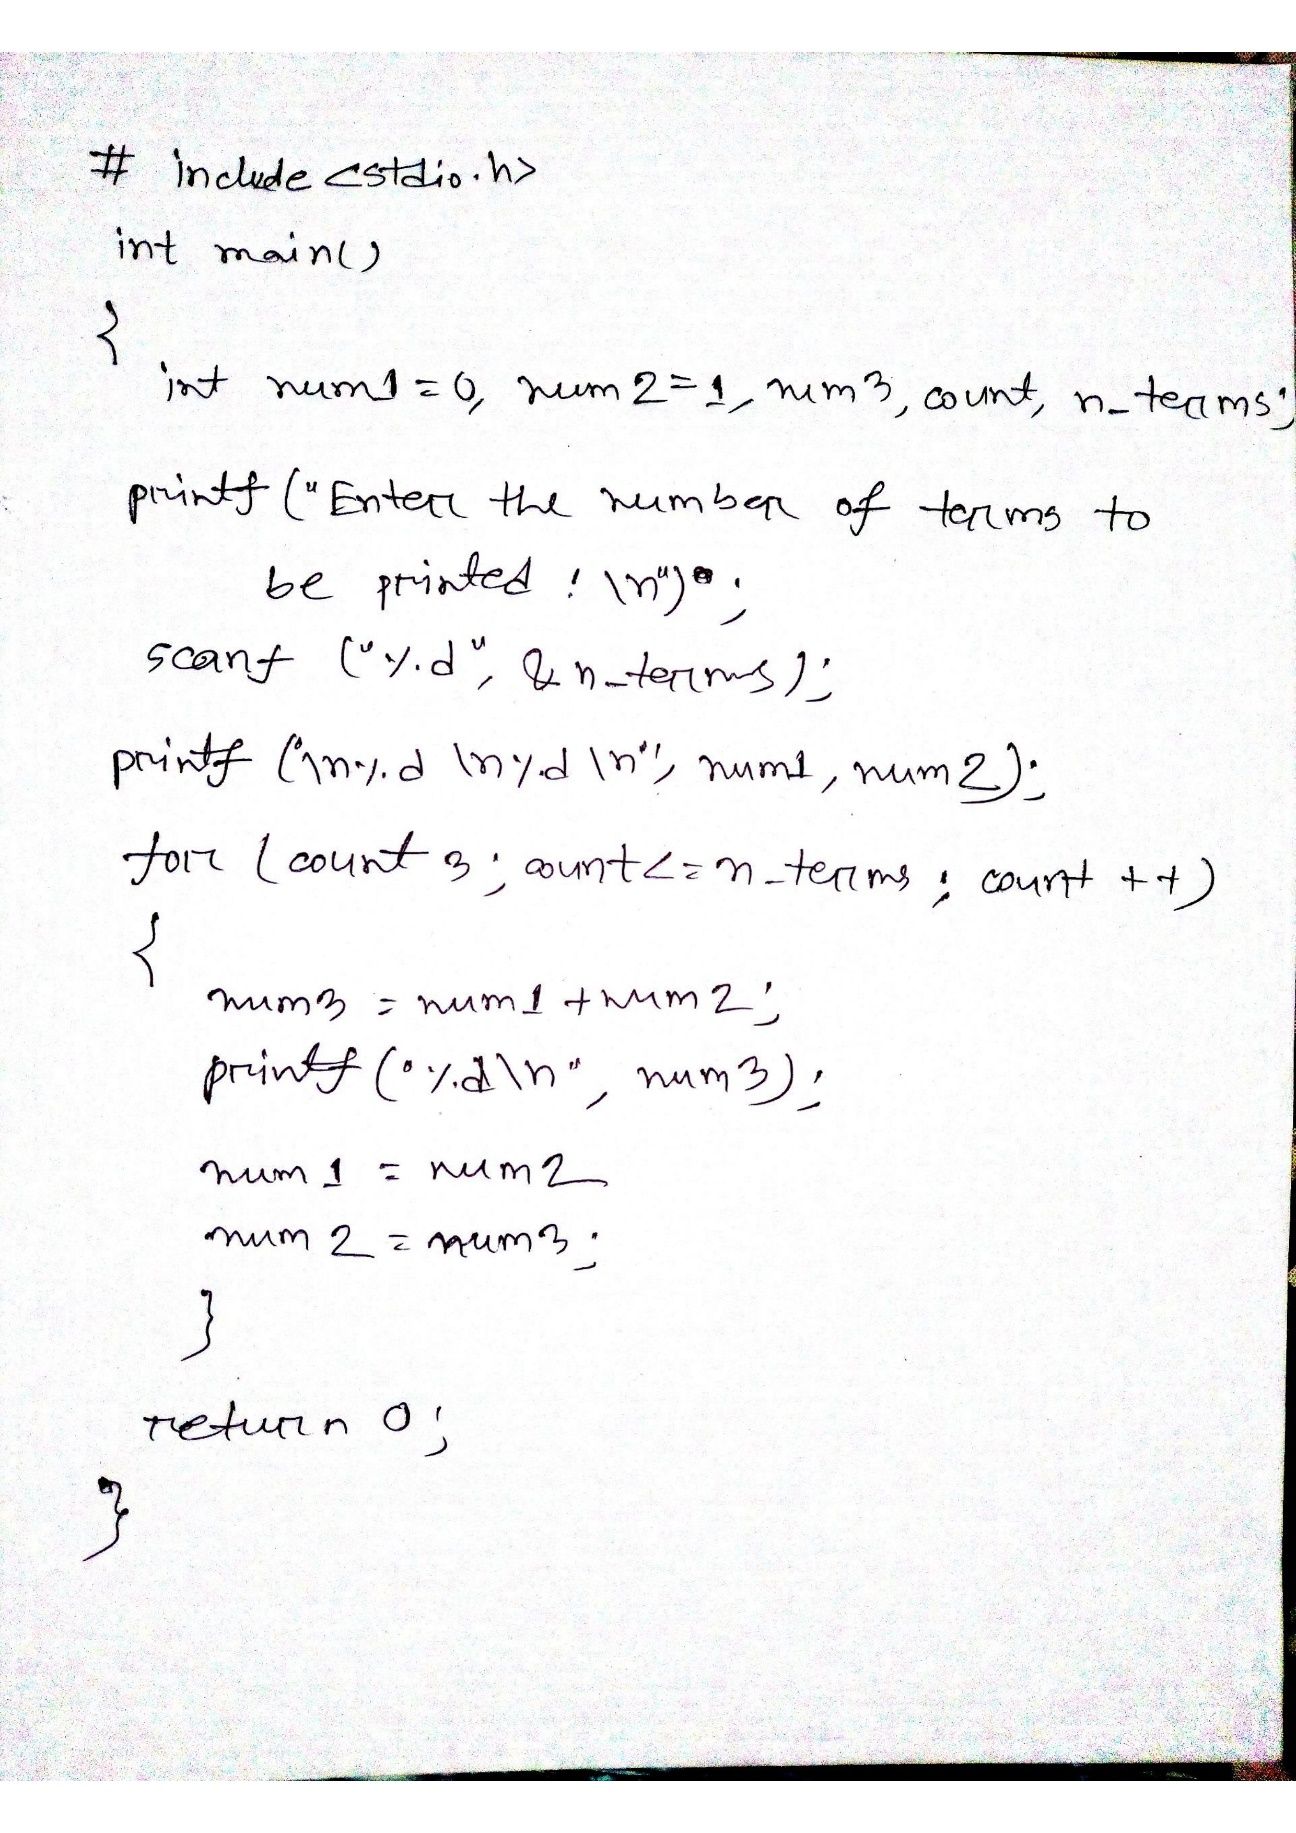 # include <stdio.h>
int main()
{
int num1=0, num2=1, num3, count, n_terms;
printf ("Enter the number of terms to
be printed : \n");
scanf ("%d", &n_terms);
printf ("\n%d \n%d \n", num1, num2);
for (count 3; count<=n_terms; count ++)
{
num3 = num1 +num2;
printf ("%d\n", num3);
num1 = num2
num2 = num3;
}
return 0;
}